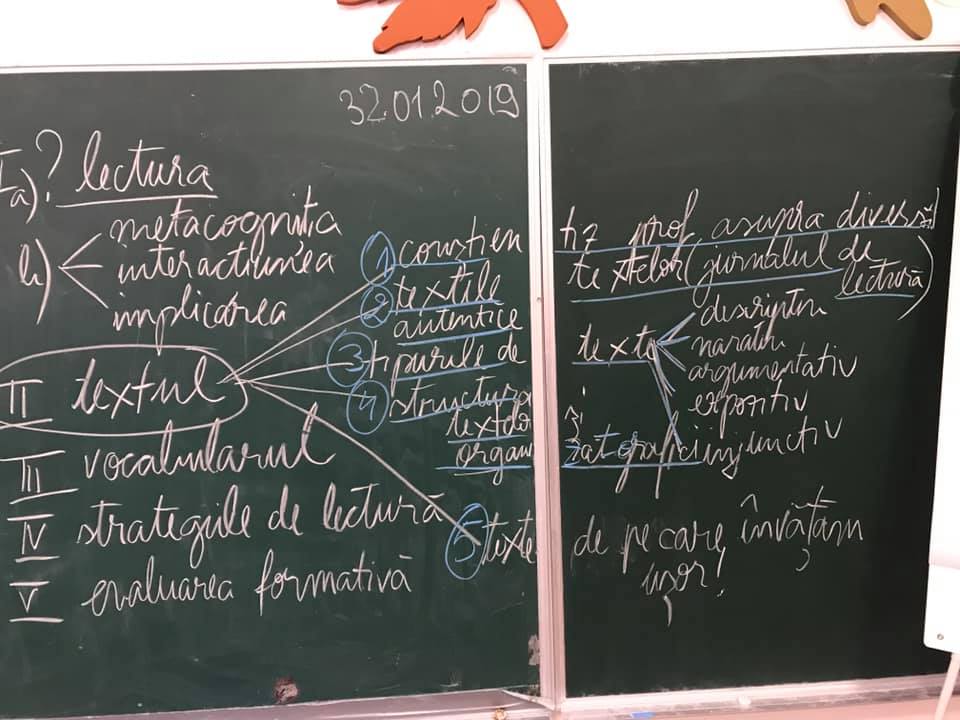 32.01.2019
I a) ? lectura
b) metacogniția
interacțiunea
implicarea
II textul
① conștien tiz prof asupra diversit
textelor (jurnalul de
lectură)
② textile
autentice
③ tipurile de texte
descriptiv
narativ
argumentativ
expozitiv
injunctiv
④ structura
textelor și
organi zat grafici
⑤ texte de pe care învățăm
ușor!
III vocabularul
IV strategiile de lectură
V evaluarea formativă